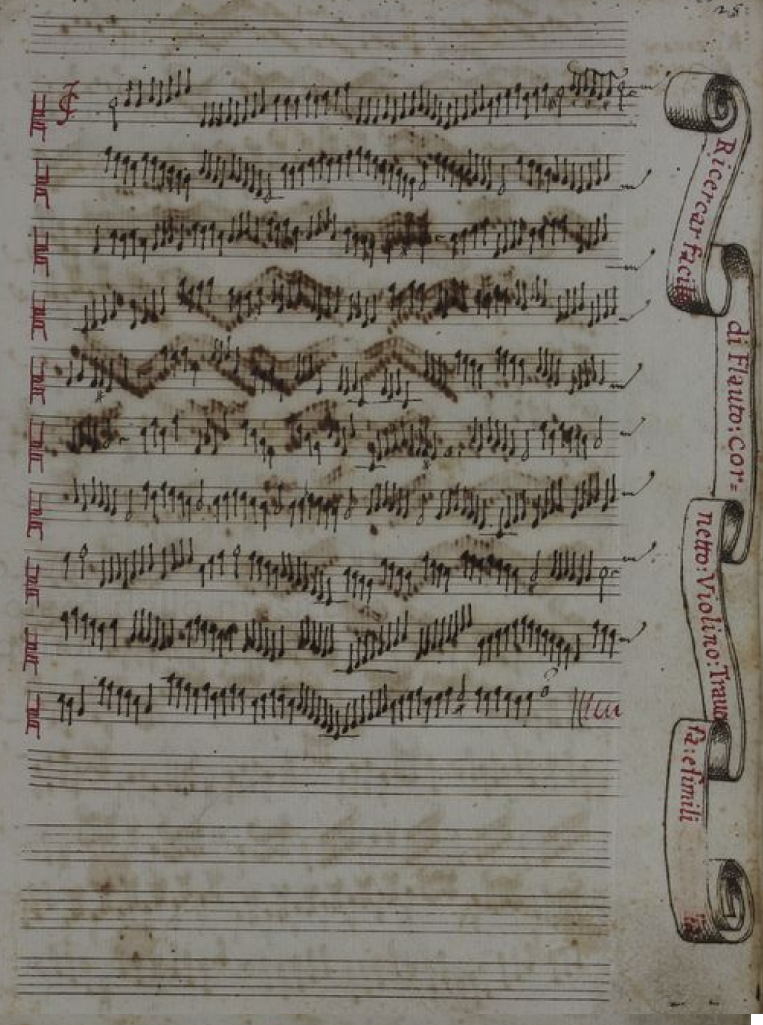 25
Ricercar facile
di Flauto: Cor=
netto: Violino: Trauer
sa: e simili